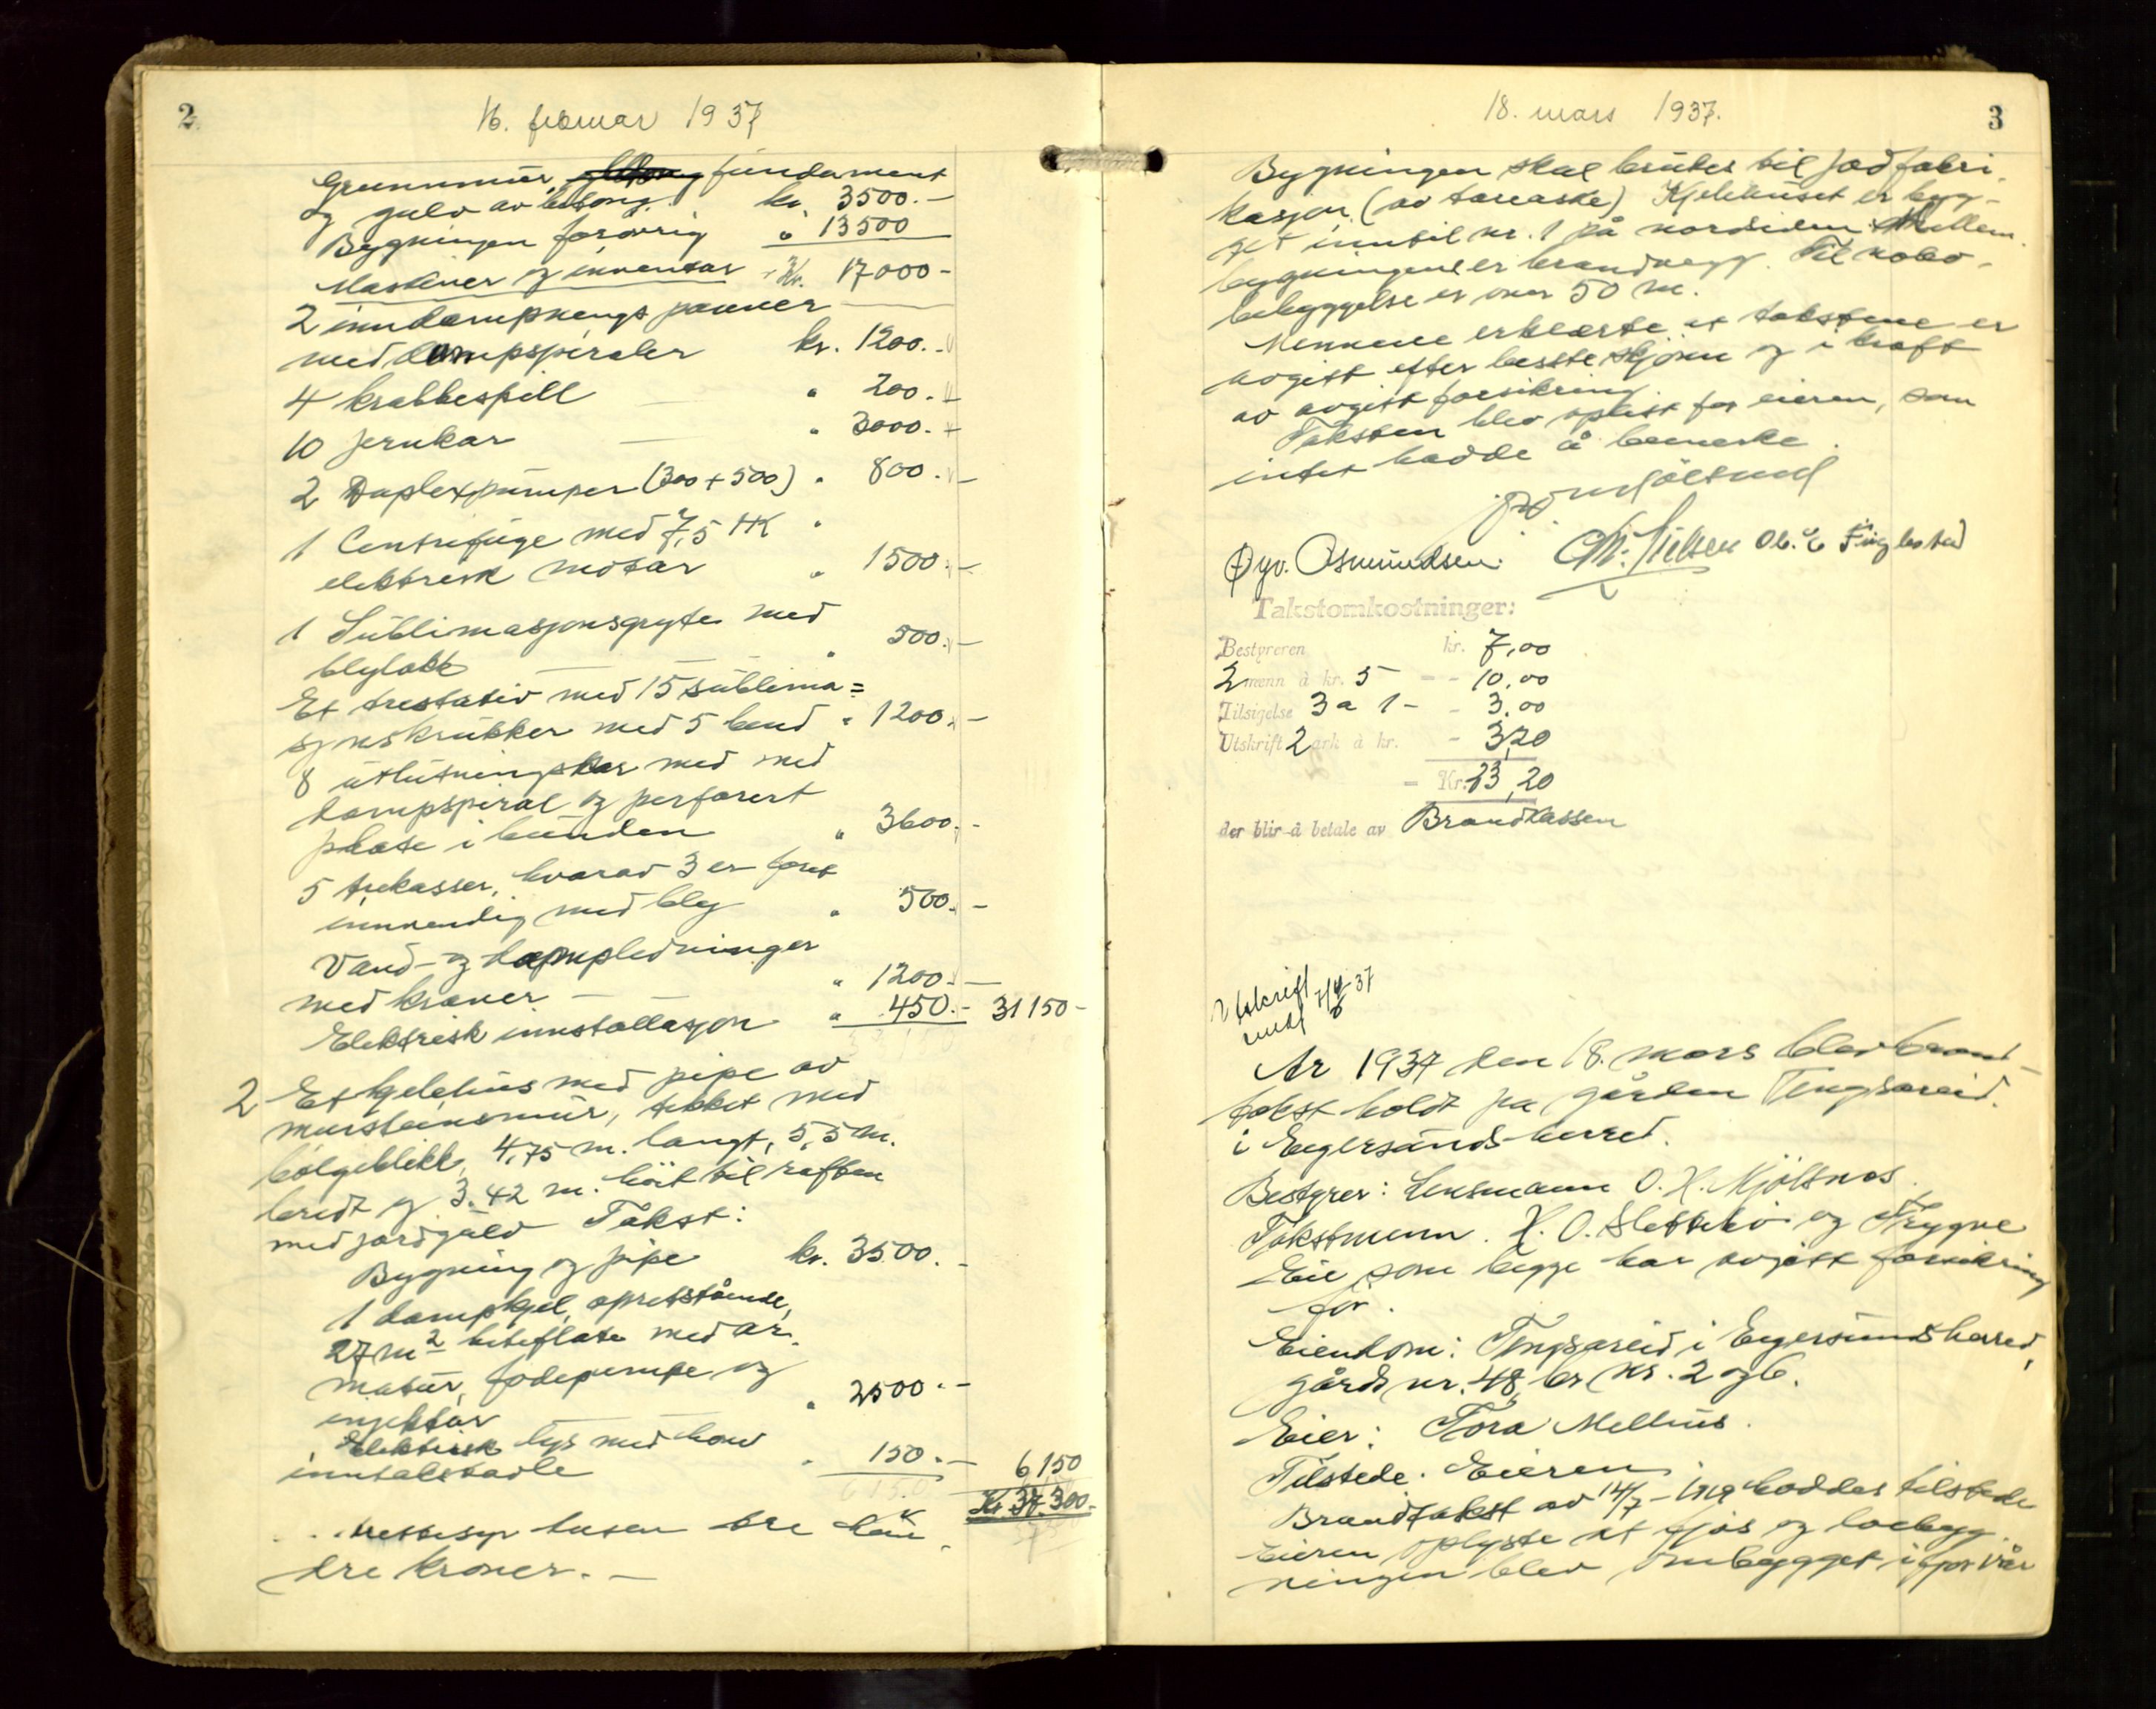 2
16. februar 1937
Grunnmur, fundament
og gulv av betong. kr. 3500.-
Bygningen forøvrig " 13500
Maskiner og inventar Kr. 17000-
2 inndampnengs panner
med dampspiraler kr. 1200.-
4 krabbespill " 200.-
10 jernkar " 3000.-
2 Duplexpumper (300+500) " 800.-
1 Centrifuge med 7,5 HK "
elektrisk motor " 1500.-
1 Sublimasjonsgryte med
blylokk " 500.-
Et trestativ med 15 sublima=
sjonskrukker med 5 bend " 1200.-
8 utlutningskar med med
dampspiral og perforert
plate i bunden " 3600.-
5 trekasser, hvorav 3 er foret
innvendig med bly " 500.-
Vand- og dampledninger
med kraner - " 1200.-
Elektrisk innstallasjon " 450.- 31150-
2 Et kjelehus med pipe av
mursteinsmur, tekket med
bølgeblikk, 4,75 m. langt, 5,5 m.
bredt og 3.42 m. høit til raften
med jordgulv Takst:
Bygning og pipe kr. 3500.-
1 dampkjel, opretstående,
27 m2 heteflate med ar-
matur, fødepumpe og
injektor " 2500.-
Elektrisk lys med hoved
inntakstavle " 150.- 6150
Kr. 37.300.-
tusen tre hun-
dre kroner.-
18. mars 1937.
3
Bygningen skal brukes til jodfabri-
kasjon (av tareaske) Kjelehuset er byg-
get inntil nr. 1 på nordsiden. Mellem
bygningene er brandvegg. Til nabo-
bebyggelse er over 50 m.
Mennene erklærte at takstene er
avgitt efter beste skjønn og i kraft
av avgitt forsikring.
Taksten blev oplest for eieren, som
intet hadde å bemerke.
Øyv. Osmundsen. Chr. Nielsen
Takstomkostninger:
Bestyreren kr. 7,00
2 menn à kr. 5 - - 10,00
Tilsigelse 3 a 1- - 3,00
Utskrift 2 ark à kr. - 3,20
- Kr. 23,20
der blir å betale av Brandkassen
Utskrift
sendt 7/4 37
År 1937 den 18. mars blev brand-
takst holdt på gården Tengsareid
i Eigersunds herred.
Bestyrer: Lensmann O. K. Mjølsnes.
Takstmenn. K. O. Slettebø og Trygve
Eie som begge har avgitt forsikring
før.
Eiendom: Tengsareid i Eigersunds herred,
gårds nr. 48, br nr. 2 og 6.
Eier: Tora Mellhus.
Tilstede: Eieren
Brandtakst av 14/7-1919 haddes tilstede
Eieren oplyste at fjøs og løebyg-
ningen blev ombygget i fjor vår